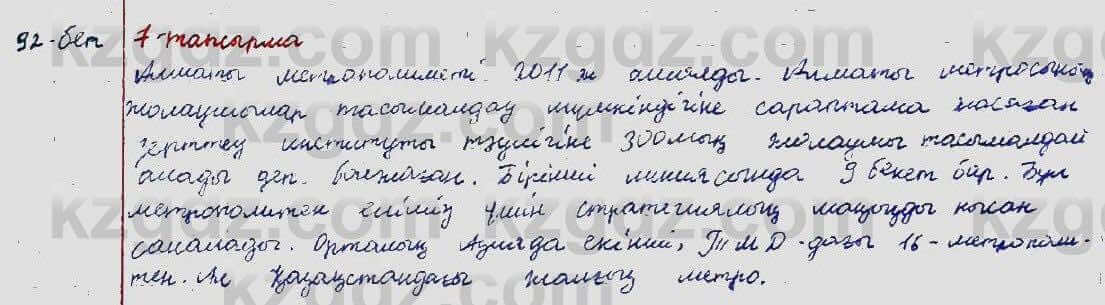 92-бет 7-тапсырма
Алматы метрополитені 2011 ж ашылды. Алматы метросының
жолаушылар тасымалдау мүмкіндігіне сараптама жасаған
зерттеу институты тәулігіне 300 мың жолаушы тасымалдай
алады деп болжаған. Бірінші линиясында 9 бекет бар. Бұл
метрополитен еліміз үшін стратегиялық маңызды нысан
саналады. Орталық Азияда екінші, ТМД-дағы 16-метрополи-
тен. Ал Қазақстандағы жалғыз метро.